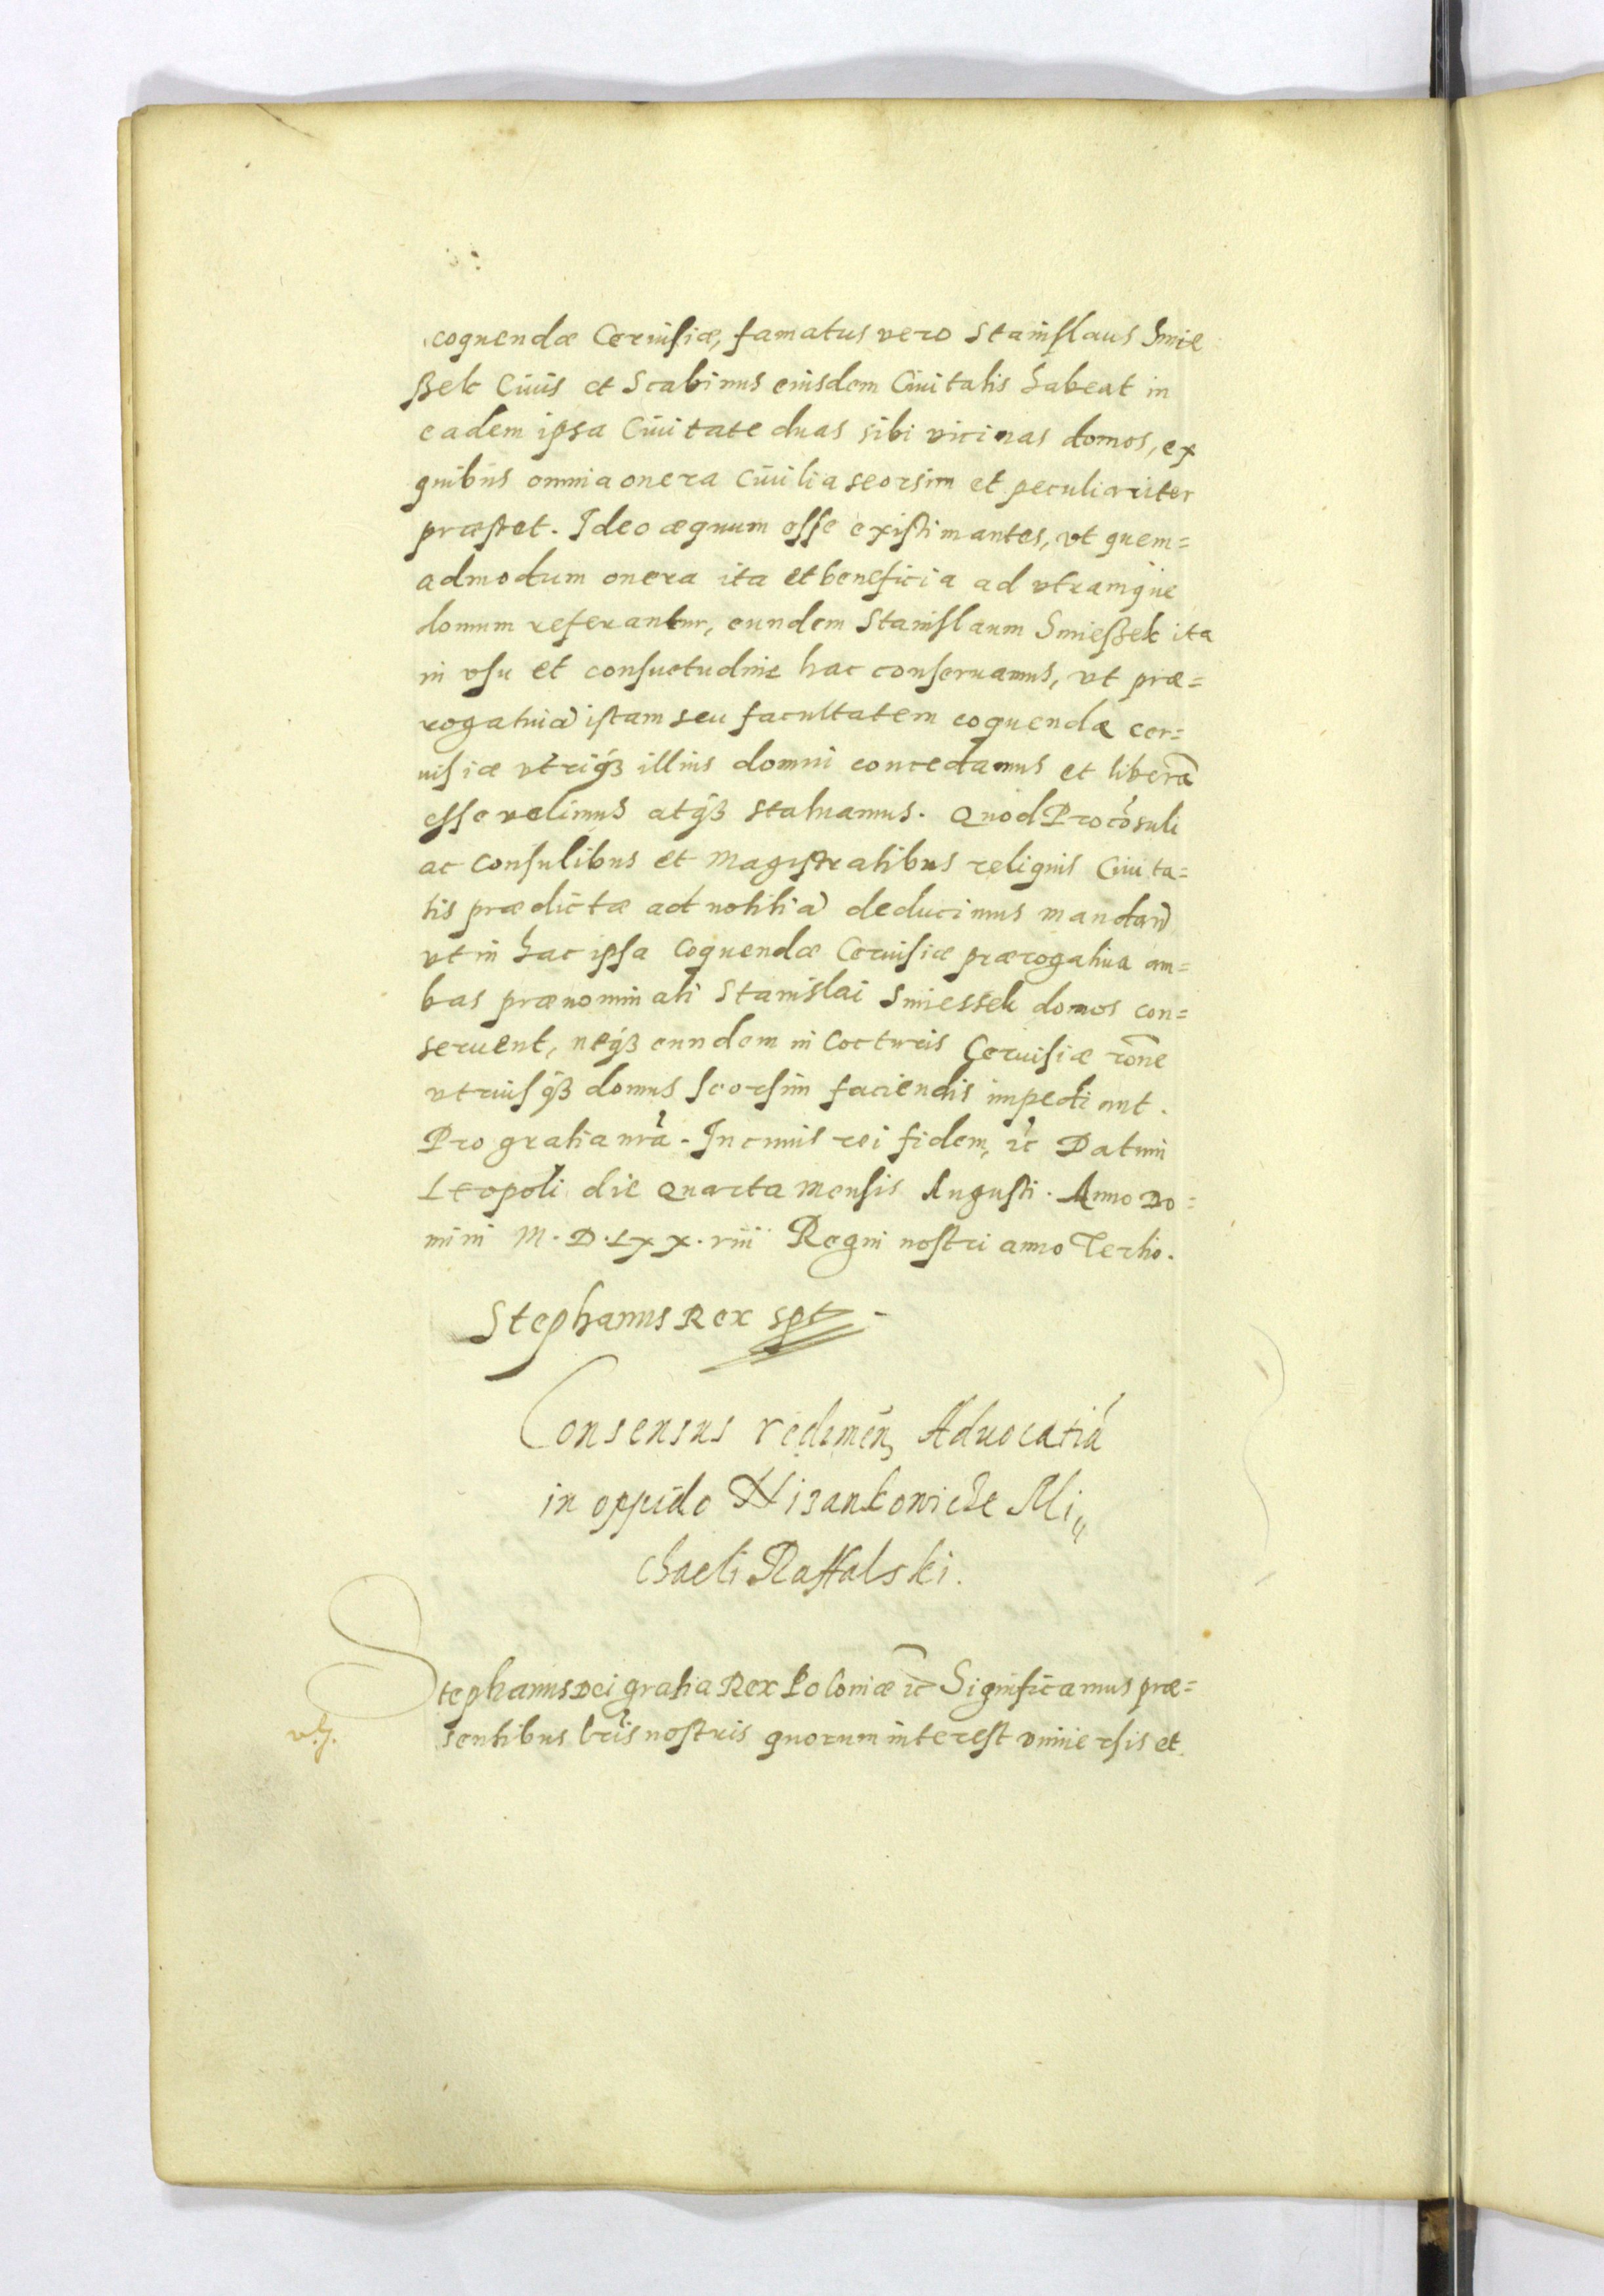 coquendæ Ceruisiæ, famatus vero Stanislaus Smie
ßek Ciuis et Scabinus eiusdem Ciuitatis habeat in
eadem ipsa Ciuitate duas sibi vicinas domos, ex
quibus omnia onera Ciuilia seorsim et peculiariter
præstet. Ideo æquum esse existimantes, vt quem=
admodum onera ita et beneficia ad vtramque
domum referantur, eundem Stanislaum Smießek ita
in vsu et consuetudine hac conseruamus, vt præ=
rogatiuã istam seu facultatem coquendæ cer=
uisiæ vtriqꝫ illius domui concedamus et liberã
esse velimus atqꝫ statuamus. Quod Procõsuli
ac Consulibus et Magistratibus reliquis Ciuita=
tis prædictæ ad notitiã deducimus mandañ
vt in hac ipsa Coquendæ Ceruisiæ prærogatiua am=
bas prænominati Stanislai Smiessek domos con=
seruent, neqꝫ eundem in Cocturis Ceruisiæ rõne
vtriusqꝫ domus seorsim faciendis impediant.
Pro gratia nrã. In cuius rei fidem, ꝛc̃ Datum
Leopoli die Quarta Mensis Augusti. Anno Do=
mini M.D.LXX.viii Regni nostri anno Tertio.
Stephanus Rex spt
Consensus redimeñ Aduocatiã
in oppido Nizankowicze Mi„
chaeli Raffalski.
Stephanus Dei gratia Rex Poloniæ ꝛc̃ Significamus præ=
sentibus lrĩs nostris quorum interest vniuersis et